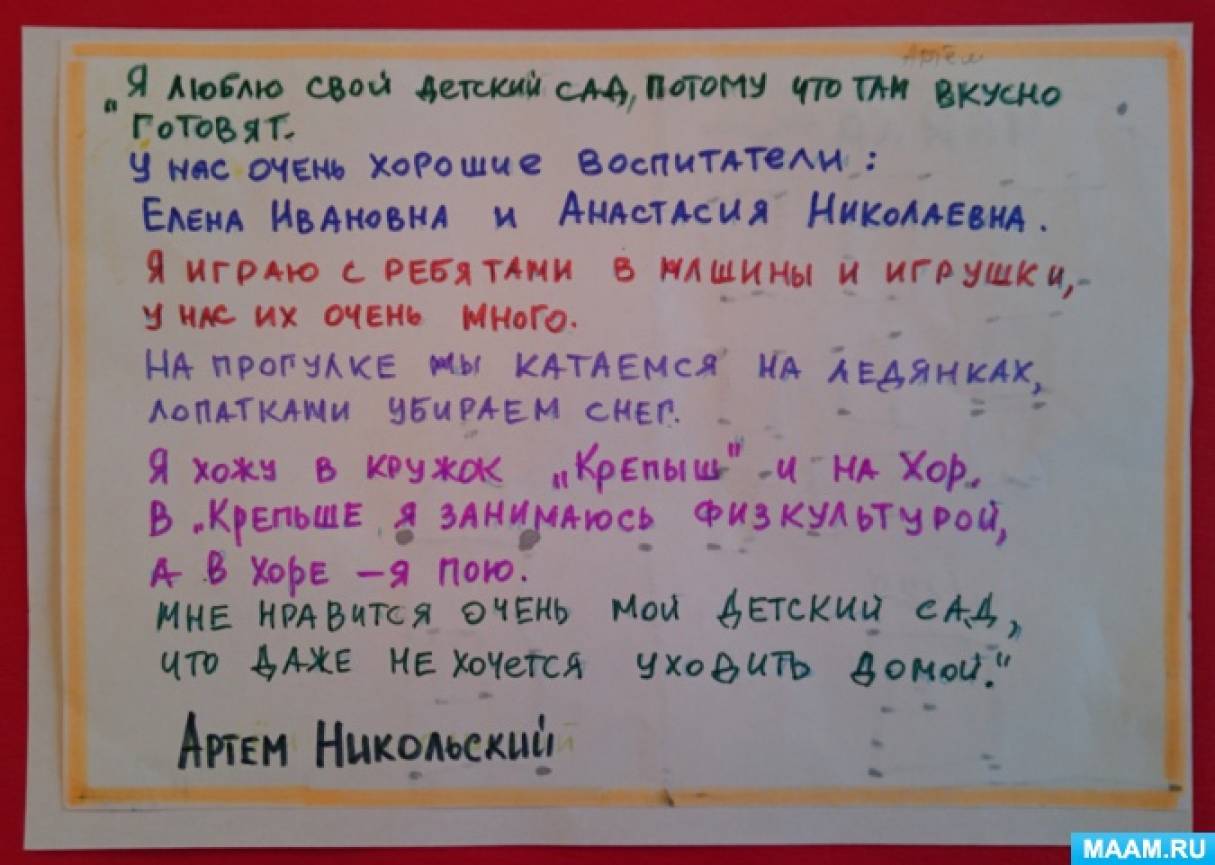 Артём
„Я люблю свой детский сад, потому что там вкусно
готовят.
У нас очень хорошие воспитатели :
Елена Ивановна и Анастасия Николаевна.
Я играю с ребятами в машины и игрушки,
у нас их очень много.
На прогулке мы катаемся на ледянках,
лопатками убираем снег.
Я хожу в кружок „Крепыш" и на Хор.
В „Крепыше я занимаюсь физкультурой,
а в хоре – я пою.
Мне нравится очень мой детский сад,
что даже не хочется уходить домой."
Артем Никольский
MAAM.RU